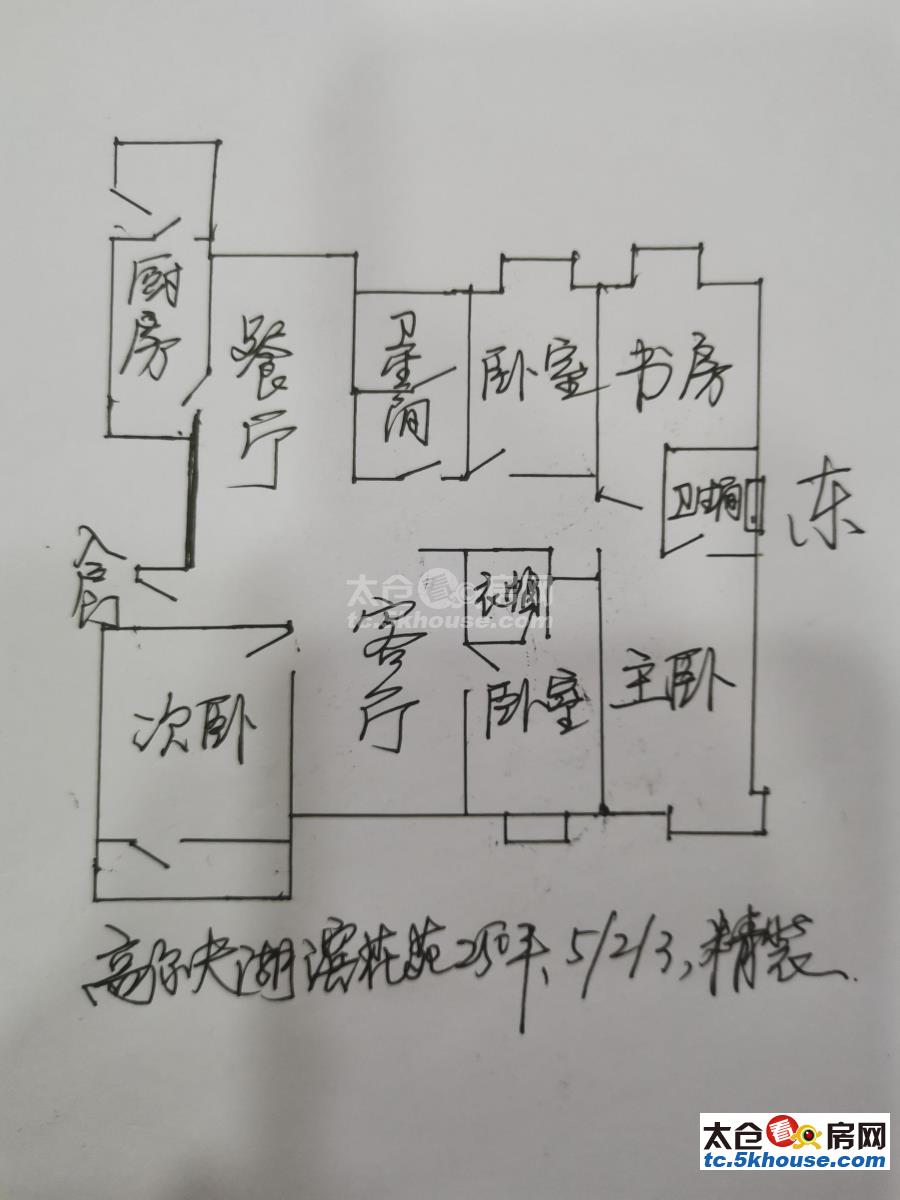 厨房
餐厅
卫生间
卧室
书房
卫生间
东
入户门
衣帽
客厅
次卧
卧室
主卧
高尔夫湖滨花苑250平、5/2/3,精装
太仓看房网
tc.5khouse.com
太仓看房网
tc.5khouse.com